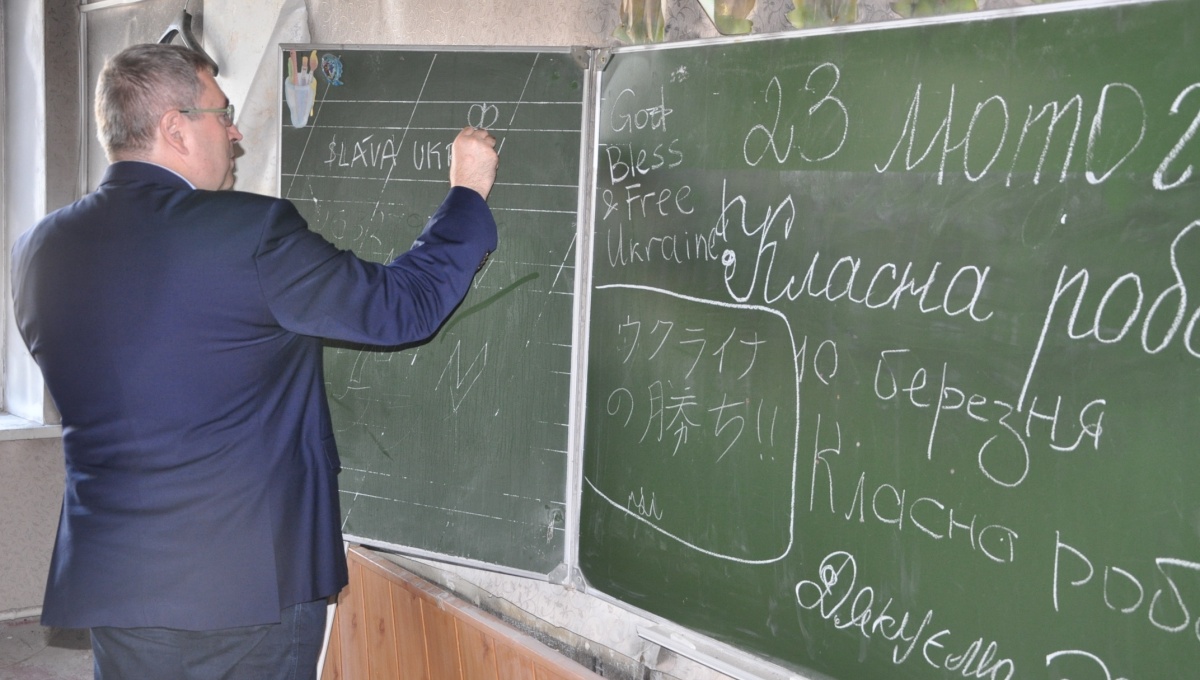 SLAVA UKR
God
Bless
& Free
Ukraine
ウクライナ
の勝ち!!
23 лютог
Класна роб
10 березня
Класна роб
Дякуємо